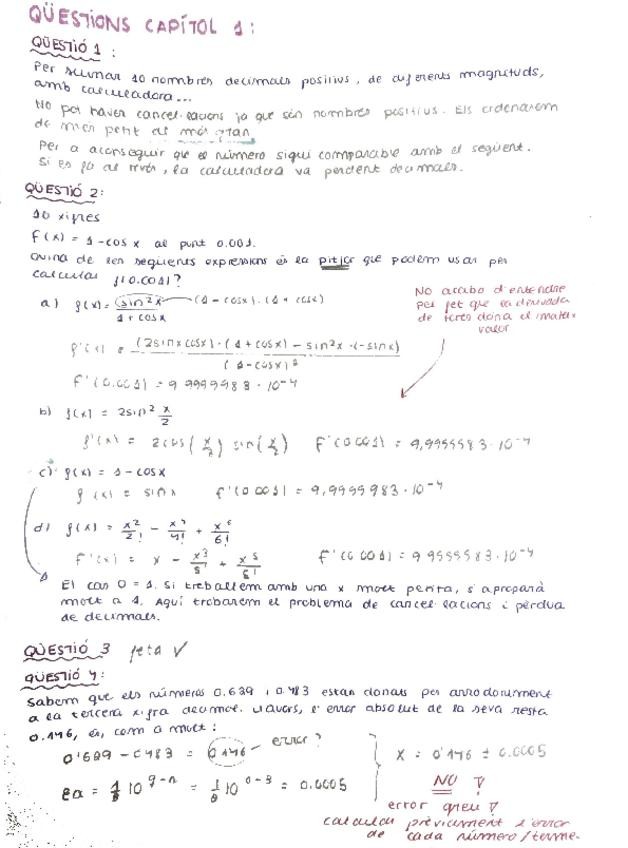 QÜESTIONS CAPÍTOL 1:
QÜESTIÓ 1:
Per sumar 10 nombres decimals positius, de diferents magnituds,
amb calculadora...
No pot haver cancel·lacions ja que són nombres positius. Els ordenarem
de més petit al més gran
Per a aconseguir que el número sigui comparable amb el següent.
Si es fa al revés, la calculadora va perdent decimals.
QÜESTIÓ 2:
10 xifres
f(x) = 1-cos x al punt 0.001.
Quina de les següents expressions és la pitjor que podem usar per
calcular f(0.001)?
a) f(x) = sin²x / 1+cosx (1-cosx)·(1+cosx)
No acabo d'entendre
pel fet que la derivada
de totes dona el mateix
valor
f'(x) = (2sinx cosx)·(1+cosx) - sin²x·(-sinx) / (1-cosx)²
f'(0.001) = 9.9999983·10⁻⁴
b) f(x) = 2sin² x/2
f'(x) = 2cos(x/2) sin(x/2) f'(0.001) = 9,9999983·10⁻⁴
c) f(x) = 1-cosx
f'(x) = sinx f'(0.001) = 9,9999983·10⁻⁴
d) f(x) = x²/2! - x⁴/4! + x⁶/6!
f'(x) = x - x³/3! + x⁵/5! f'(0.001) = 9.9999983·10⁻⁴
El cos 0 = 1. Si treballem amb una x molt petita, s'aproparà
molt a 1. Aquí trobarem el problema de cancel·lacions i pèrdua
de decimals.
QÜESTIÓ 3 feta ✓
QÜESTIÓ 4:
Sabem que els números 0.639 i 0.483 estan donats per arrodoniment
a la tercera xifra decimal. Llavors, l'error absolut de la seva resta
0.146, és, com a molt:
0'629 - 0483 = 0.146 - error? X = 0'146 ± 0.0005
ea = 1/2 10^(q-n) = 1/2 10^(0-3) = 0.0005 NO
error greu
calcular prèviament l'error
de cada número/terme.